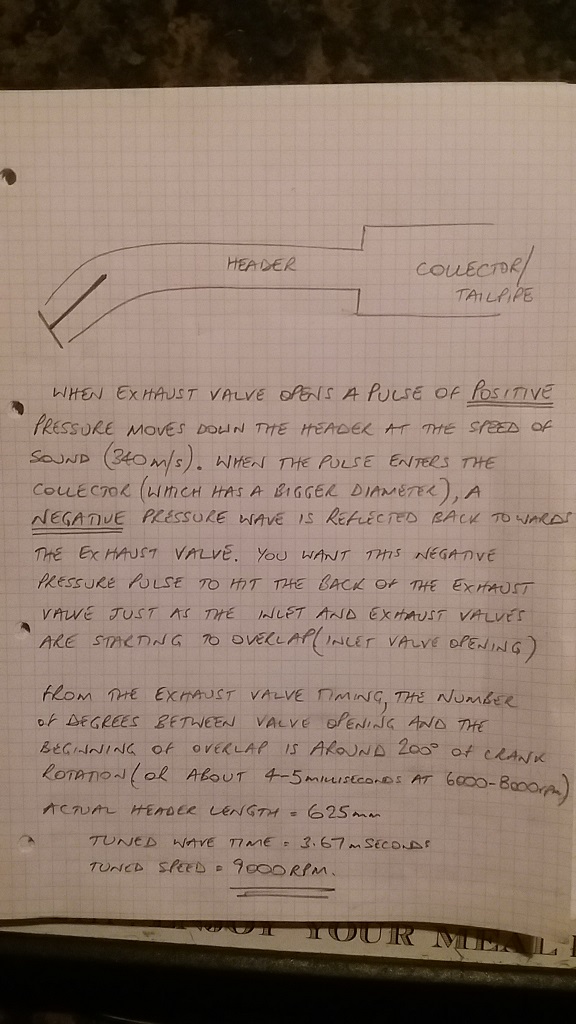 HEADER
COLLECTOR/
TAILPIPE
WHEN EXHAUST VALVE OPENS A PULSE OF POSITIVE
PRESSURE MOVES DOWN THE HEADER AT THE SPEED OF
SOUND (340m/s). WHEN THE PULSE ENTERS THE
COLLECTOR (WHICH HAS A BIGGER DIAMETER), A
NEGATIVE PRESSURE WAVE IS REFLECTED BACK TOWARDS
THE EXHAUST VALVE. YOU WANT THIS NEGATIVE
PRESSURE PULSE TO HIT THE BACK OF THE EXHAUST
VALVE JUST AS THE INLET AND EXHAUST VALVES
ARE STARTING TO OVERLAP (INLET VALVE OPENING)
FROM THE EXHAUST VALVE TIMING, THE NUMBER
OF DEGREES BETWEEN VALVE OPENING AND THE
BEGINNING OF OVERLAP IS AROUND 200° OF CRANK
ROTATION (OR ABOUT 4-5 MILLISECONDS AT 6000-8000rpm)
ACTUAL HEADER LENGTH = 625mm
TUNED WAVE TIME = 3.67 mSECONDS
TUNED SPEED = 9000 RPM.
ENJOY YOUR MEAL